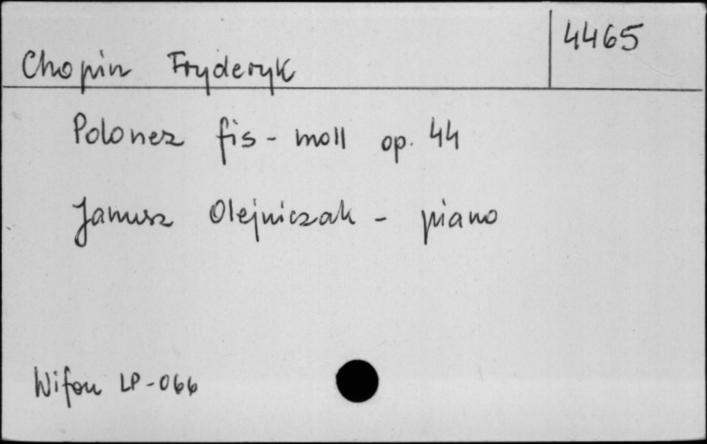 4465
Chopin Fryderyk
Polonez fis-moll op. 44
Janusz Olejniczak - piano
Wifon LP-066